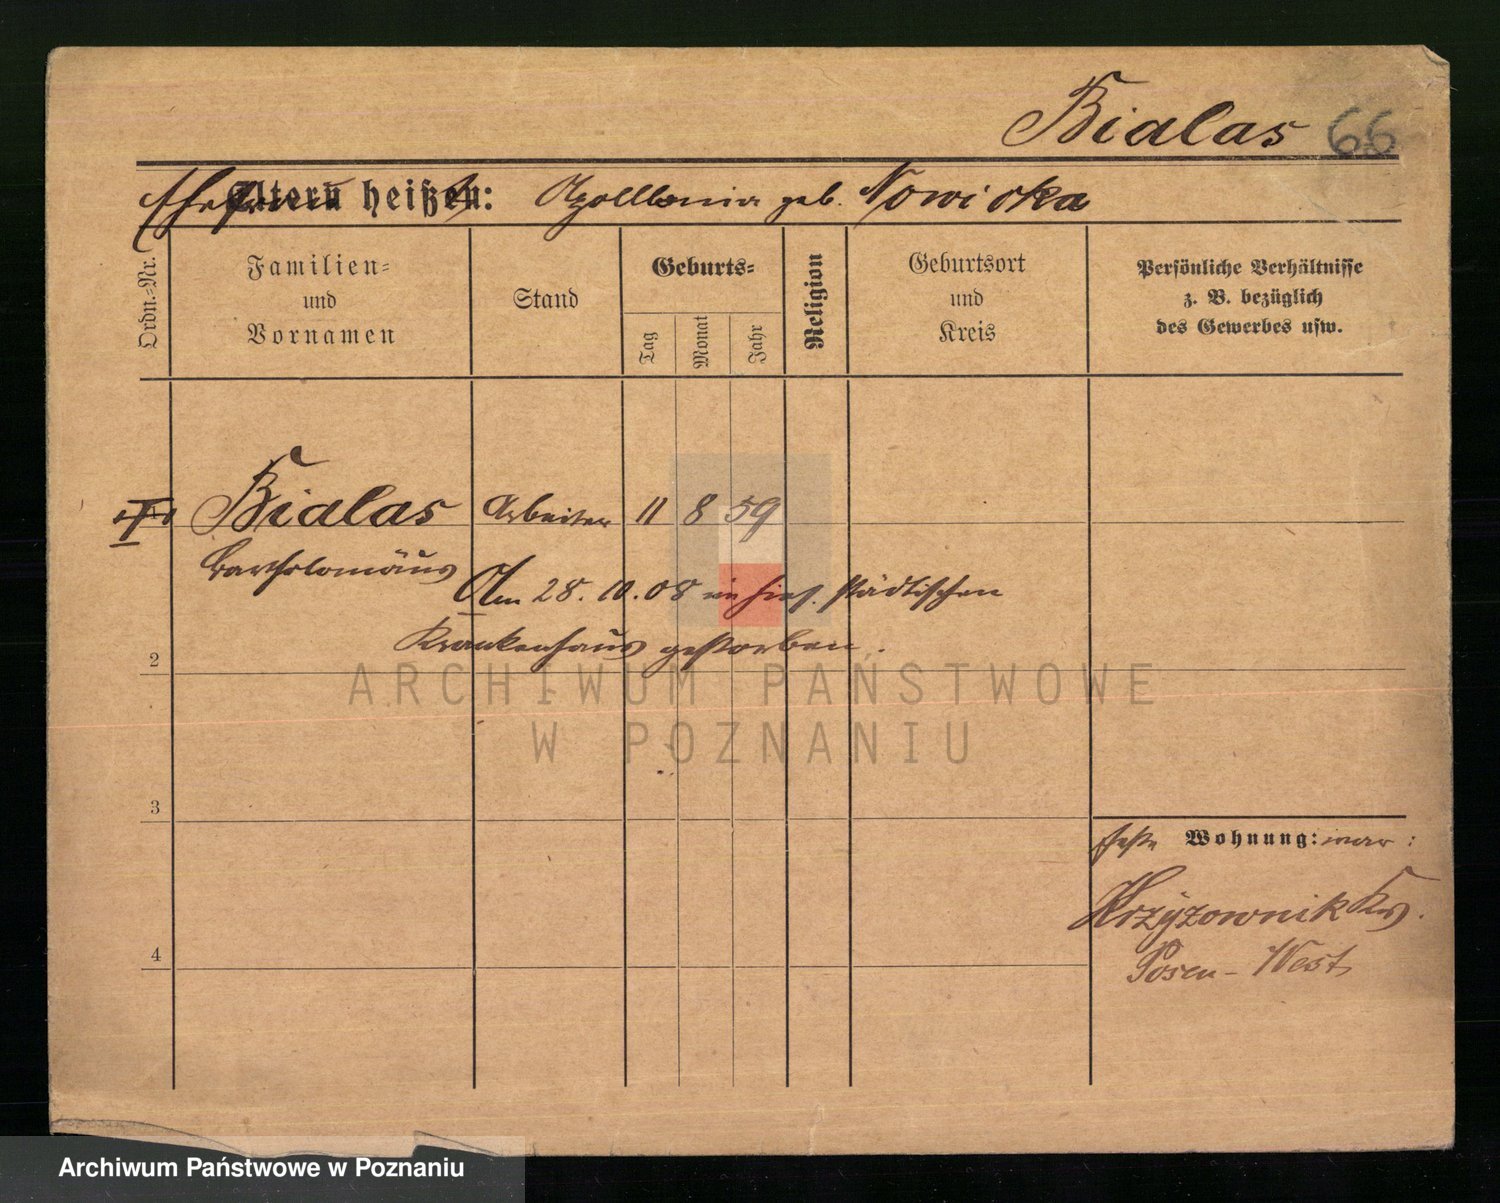 Bialas 66
Ehefrau Eltern heißen: Apollonia geb. Nowicka
Ordn.=Nr.
Familien=
und
Vornamen
Stand
Geburts=
Tag
Monat
Jahr
Religion
Geburtsort
und
Kreis
Persönliche Verhältnisse
z. B. bezüglich
des Gewerbes usw.
Bialas Arbeiter 11 8 59
Bartholomäus
Am 28. 10. 08 im hies. städtischen
Krankenhaus gestorben.
2
3
4
feste Wohnung: war:
Krzyżownik Krs.
Posen-West
ARCHIWUM PAŃSTWOWE
W POZNANIU
Archiwum Państwowe w Poznaniu